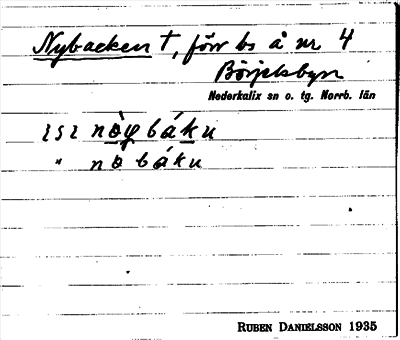 Nybacken †, förr bs å nr 4
Börjelsbyn
Nederkalix sn o. tg. Norrb. län
nòybáku
" nobáku
RUBEN DANIELSSON 1935